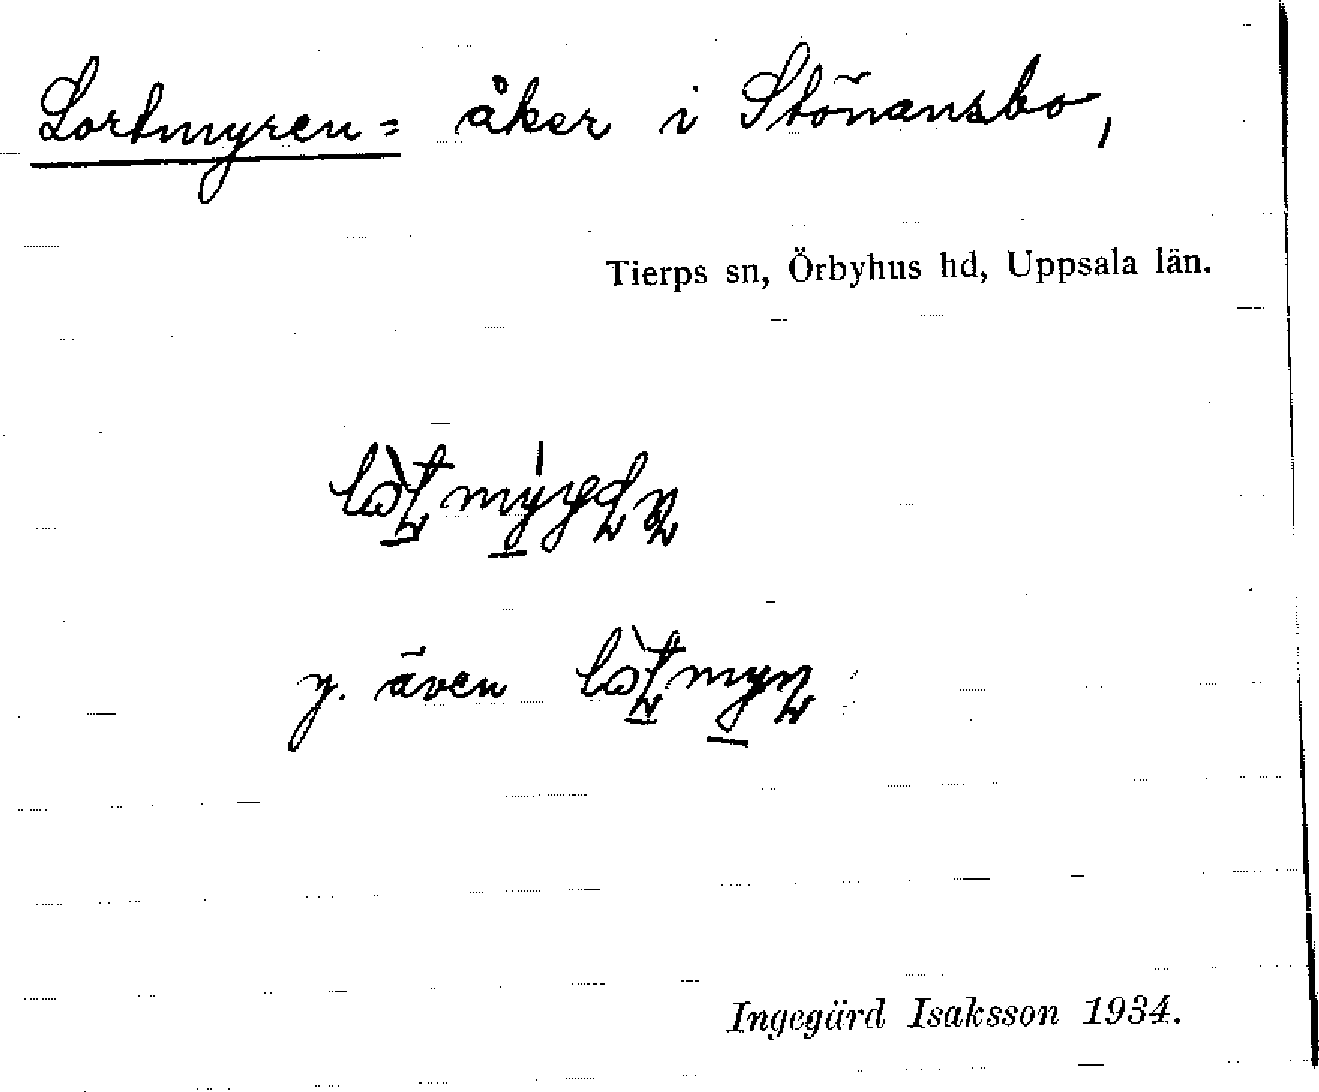 Lortmyren = åker i Stönansbo,
Tierps sn, Örbyhus hd, Uppsala län.
y. även
Ingegärd Isaksson 1934.